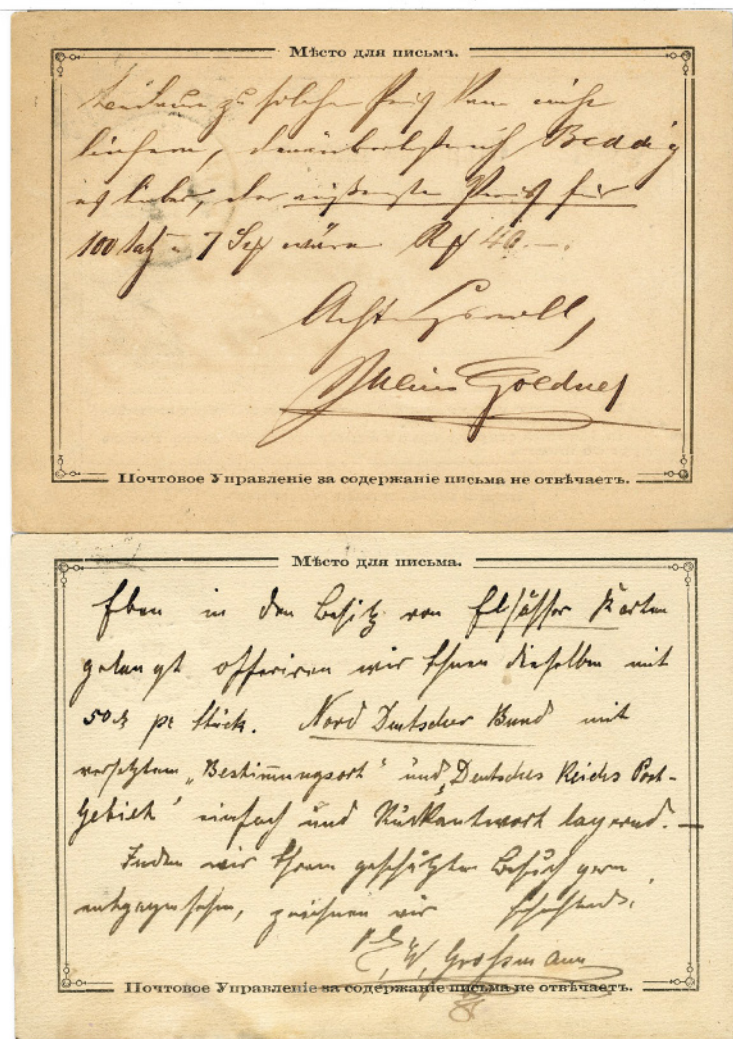 Мѣсто для письма.
zu solchem Preis kann nicht
liefern, Beddig
ist lieber, der äußerste Preis für
100 Satz 7 wären 40.—.
Achtungsvoll,
Julius Goldner
Почтовое Управленіе за содержаніе письма не отвѣчаетъ.
Мѣсто для письма.
Eben in den Besitz von Elsässer Karten
gelangt offeriren wir Ihnen dieselben mit
50 ₰ pr Stück. Nord Deutscher Bund mit
versetztem „Bestimmungsort“ und „Deutsches Reichs Post-
Gebiet“ einfach und Rückantwort lagernd. —
Indem wir Ihrem geschätzten Besuch gern
entgegensehen, zeichnen wir
W. Großmann
Почтовое Управленіе за содержаніе письма не отвѣчаетъ.